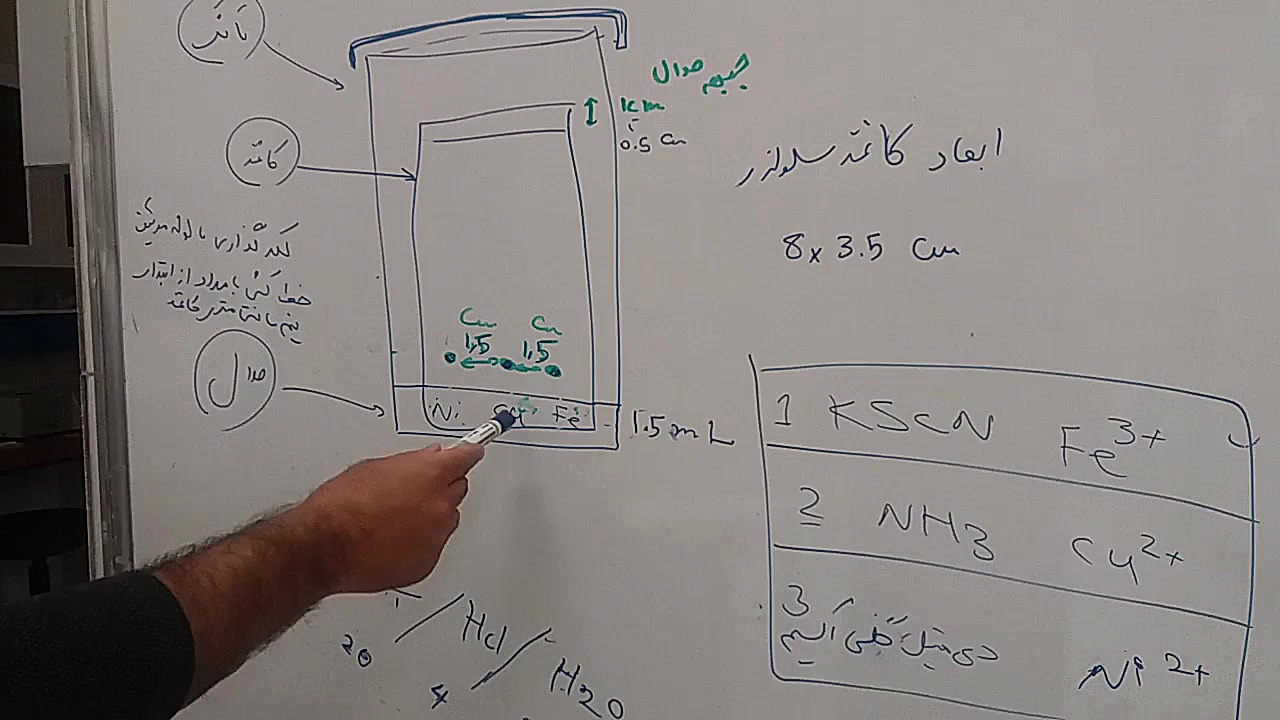 تانک
حجم حلال
1cm
0.5 Cm
کاغذ
ابعاد کاغذ سلولزر
8 x 3.5 Cm
لکه گذاری با لوله مویین
خط کشی با مداد از ابتدا
نیم سانتی متری کاغذ
Cm Cm
1,5 1,5
حلال
Ni Cu Fe
1.5 mL
1 KSCN Fe3+
2 NH3 Cu2+
3 دی متیل گلی اکسیم Ni2+
HCl / H2O
20
4